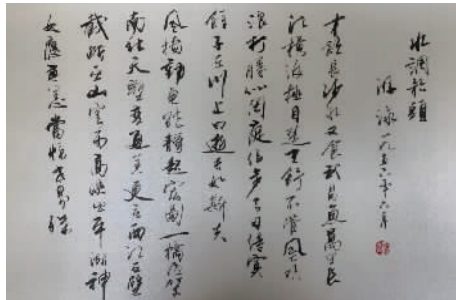 水調歌頭
游泳 一九五六年六月
才飲長沙水又食武昌魚萬里長
江橫渡極目楚天舒不管風吹
浪打勝似閑庭信步今日得寬
餘子在川上曰逝者如斯夫
風檣動龜蛇靜起宏圖一橋飛架
南北天塹變通途更立西江石壁
截斷巫山雲雨高峽出平湖神
女應無恙當驚世界殊